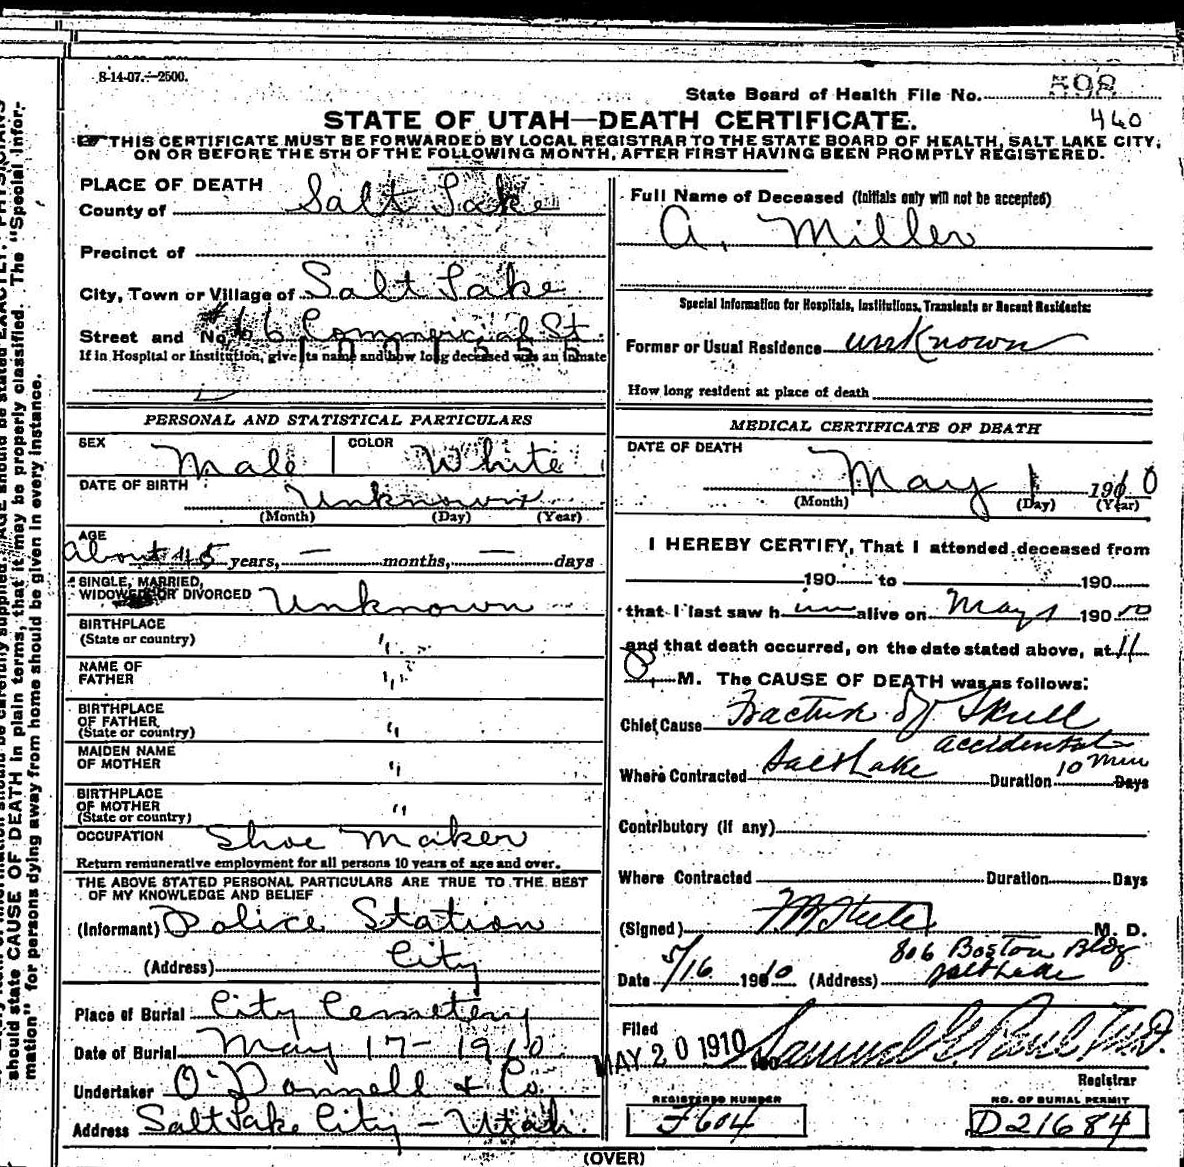 8-14-07.—2500.
State Board of Health File No. 508
460
STATE OF UTAH—DEATH CERTIFICATE.
THIS CERTIFICATE MUST BE FORWARDED BY LOCAL REGISTRAR TO THE STATE BOARD OF HEALTH, SALT LAKE CITY,
ON OR BEFORE THE 5TH OF THE FOLLOWING MONTH, AFTER FIRST HAVING BEEN PROMPTLY REGISTERED.
PLACE OF DEATH
County of Salt Lake
Precinct of
City, Town or Village of Salt Lake
Street and No. #66 Commercial St.
If in Hospital or Institution, give its name and how long deceased was an inmate
PERSONAL AND STATISTICAL PARTICULARS
SEX Male COLOR White
DATE OF BIRTH Unknown
(Month) (Day) (Year)
AGE
about 45 years, — months, — days
SINGLE, MARRIED,
WIDOWED OR DIVORCED Unknown
BIRTHPLACE
(State or country) "
NAME OF
FATHER "
BIRTHPLACE
OF FATHER
(State or country) "
MAIDEN NAME
OF MOTHER "
BIRTHPLACE
OF MOTHER
(State or country) "
OCCUPATION Shoe Maker
Return remunerative employment for all persons 10 years of age and over.
THE ABOVE STATED PERSONAL PARTICULARS ARE TRUE TO THE BEST
OF MY KNOWLEDGE AND BELIEF
(Informant) Police Station
(Address) City
Place of Burial City Cemetery
Date of Burial May 17-1910.
Undertaker O'Donnell & Co.
Address Salt Lake City - Utah.
Full Name of Deceased (Initials only will not be accepted)
A. Miller
Special Information for Hospitals, Institutions, Transients or Recent Residents:
Former or Usual Residence unknown
How long resident at place of death
MEDICAL CERTIFICATE OF DEATH
DATE OF DEATH
May 1 1910
(Month) (Day) (Year)
I HEREBY CERTIFY, That I attended deceased from
190 to 190
that I last saw him alive on May 1 190 10
and that death occurred, on the date stated above, at 11
P. M. The CAUSE OF DEATH was as follows:
Chief Cause Fracture of Skull
accidental
Where Contracted Salt Lake Duration 10 min Days
Contributory (if any)
Where Contracted Duration Days
(Signed) M. D.
Date 5/16 1910 (Address) 806 Boston Bldg
Salt Lake
Filed
MAY 20 1910 Samuel G. Paul M.D.
Registrar
REGISTERED NUMBER
F604
NO. OF BURIAL PERMIT
D21684
(OVER)
should state CAUSE OF DEATH in plain terms, that it may be properly classified. The "Special Infor-
mation" for persons dying away from home should be given in every instance.